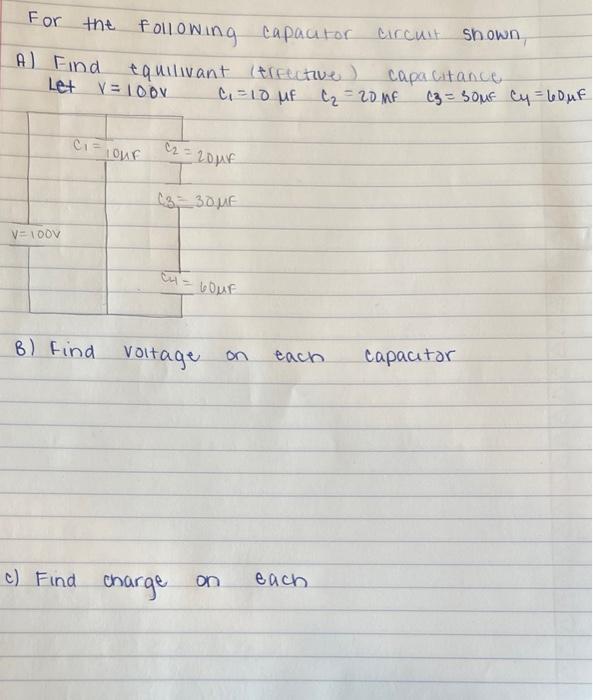 For the following capacitor circuit shown,
A) Find equilivant (effective) capacitance
Let V=100V C₁=10 μF C₂=20 mF C3=30μF C4=60μF
C₁=10μF C₂=20μF
C3=30μF
V=100V
C4=60μF
B) Find voltage on each capacitor
c) Find charge on each